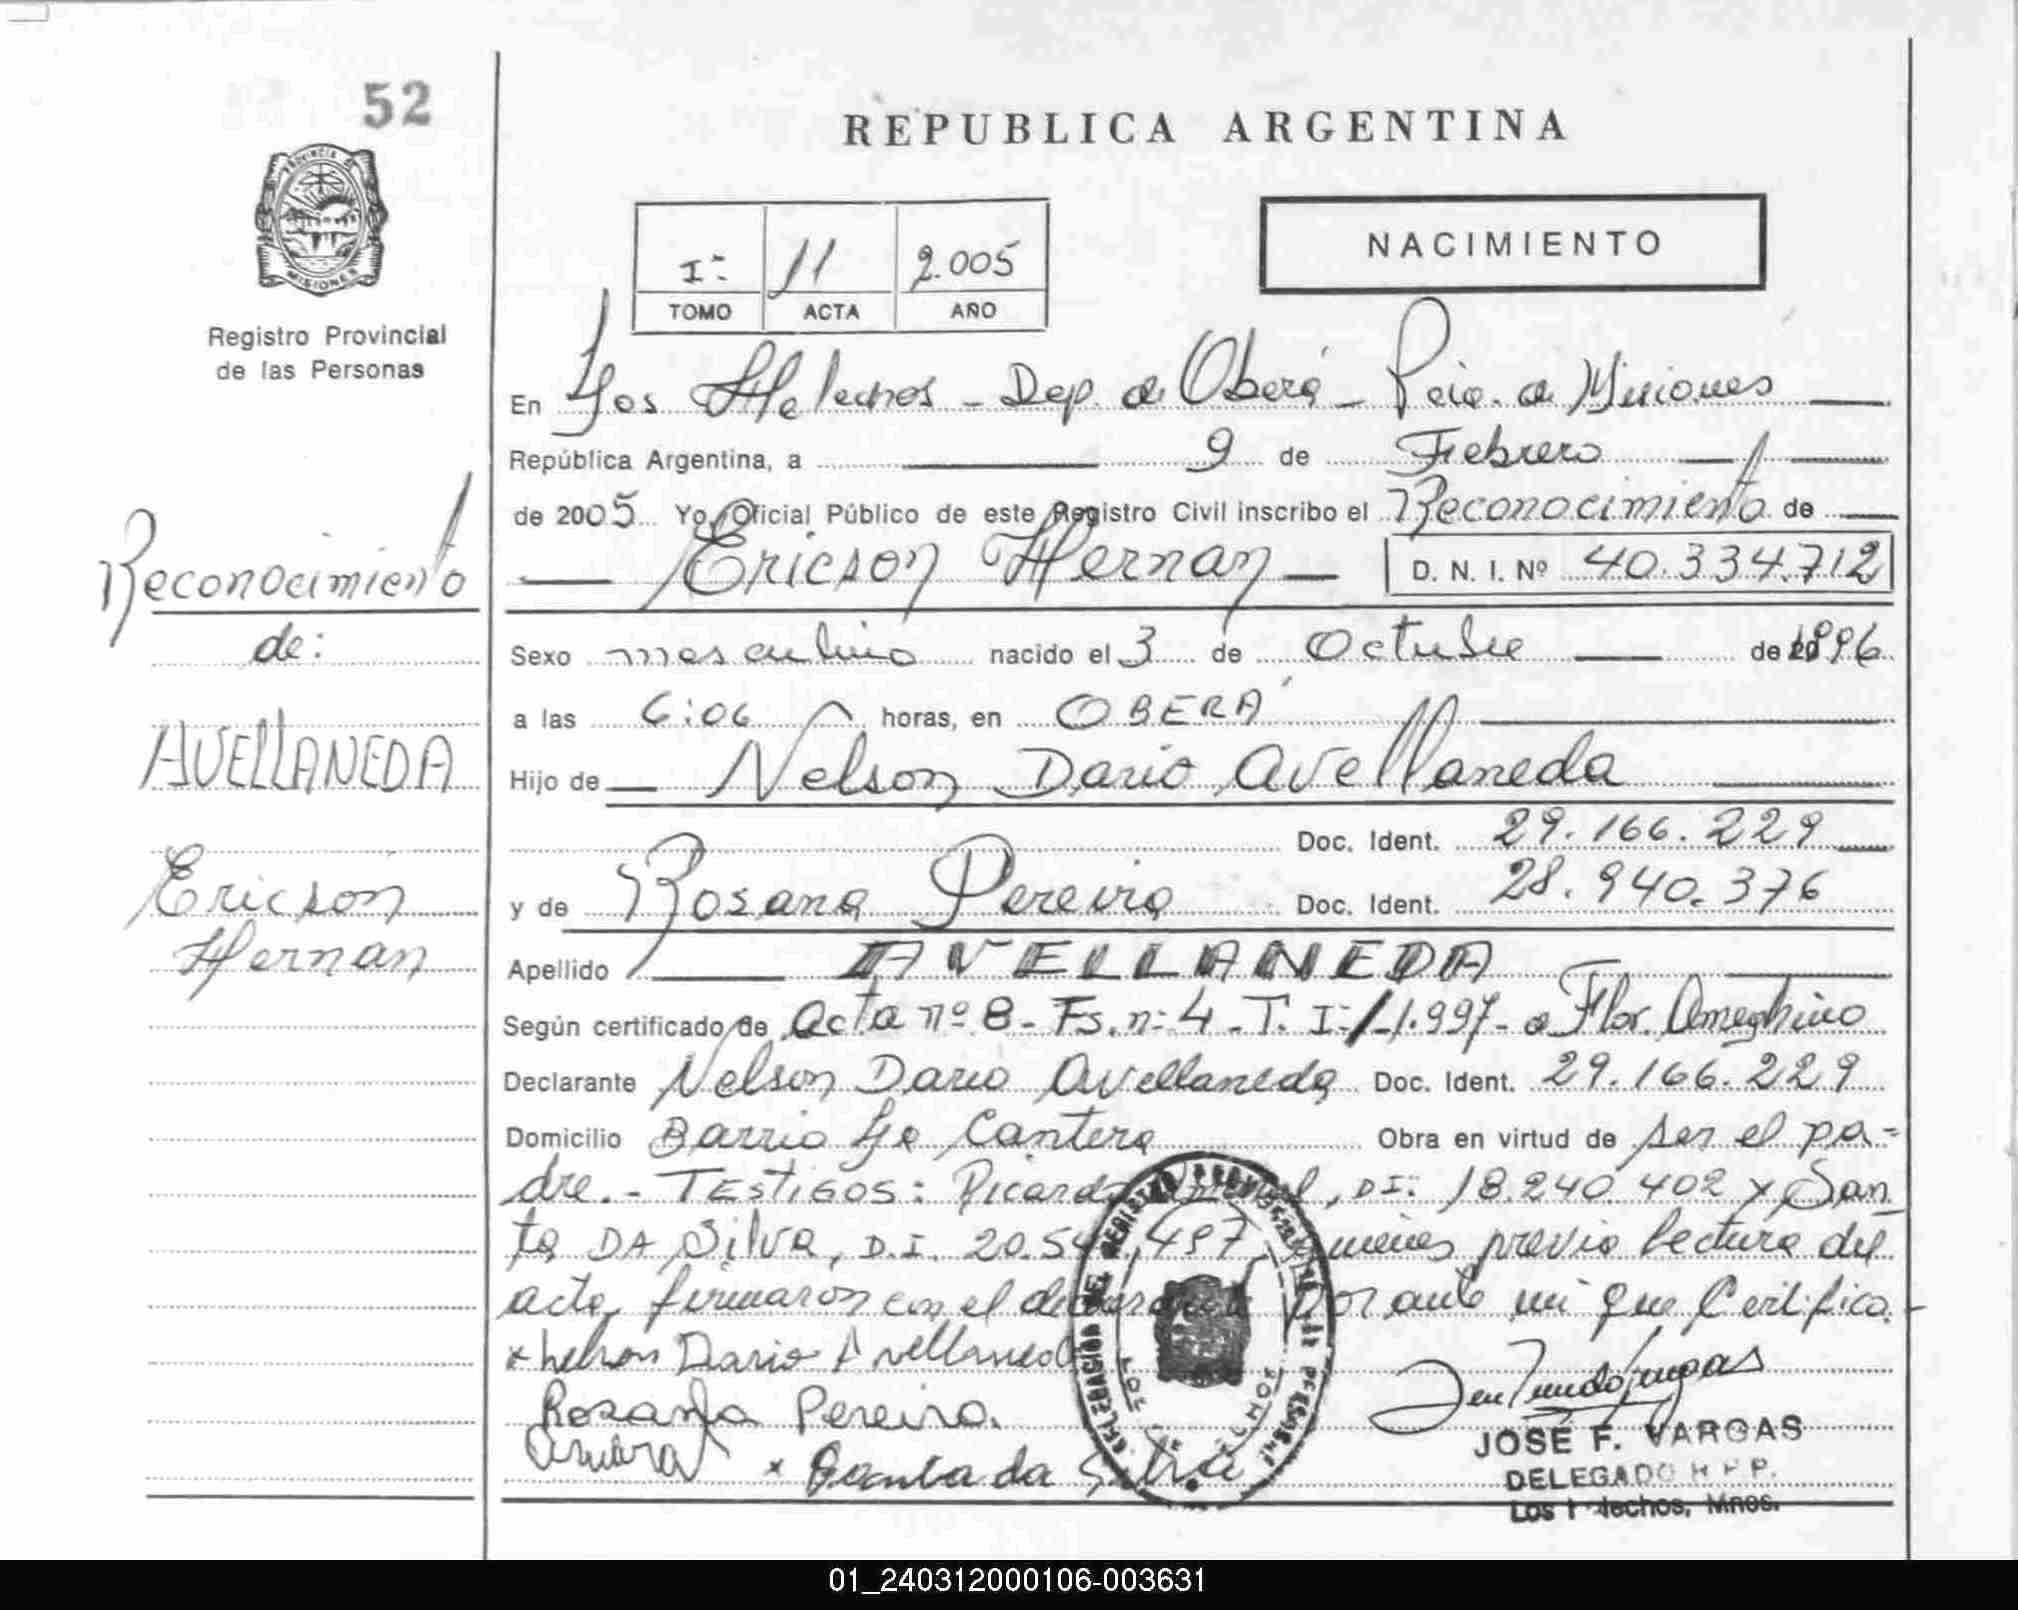 52
REPUBLICA ARGENTINA
PROVINCIA DE MISIONES
Registro Provincial
de las Personas
Iº 11 2.005
TOMO ACTA AÑO
NACIMIENTO
En Los Helechos - Dep. de Oberá - Pcia. de Misiones
República Argentina, a 9 de Febrero
de 2005 Yo, Oficial Público de este Registro Civil inscribo el Reconocimiento de
Ericson Hernan D. N. I. Nº 40.334.712
Sexo masculino nacido el 3 de Octubre de 1996
a las 6:06 horas, en OBERÁ
Hijo de Nelson Dario Avellaneda
Doc. Ident. 29.166.229
y de Rosana Pereira Doc. Ident. 28.940.376
Apellido AVELLANEDA
Según certificado de Acta nº 8 - Fs. nº 4 - T. Iº / 1.997 - a Flor. Ameghino
Declarante Nelson Dario Avellaneda Doc. Ident. 29.166.229
Domicilio Barrio La Cantera Obra en virtud de ser el pa-
dre. - TESTIGOS: Ricardo , DI: 18.240.402 y San
ta DA Silva, D.I. 20.54 .497, quienes previa lectura del
acta, firmaron con el declarante por ante mi que Certifico. -
x Nelson Dario Avellaneda
Rosana Pereira.
x Santa da Silva
JOSE F. VARGAS
DELEGADO R P P.
Los Helechos, Mnes.
DELEGACIÓN DEL REGISTRO PROVINCIAL DE LAS PERSONAS
LOS HELECHOS
Reconocimiento
de:
AVELLANEDA
Ericson
Hernan
01_240312000106-003631